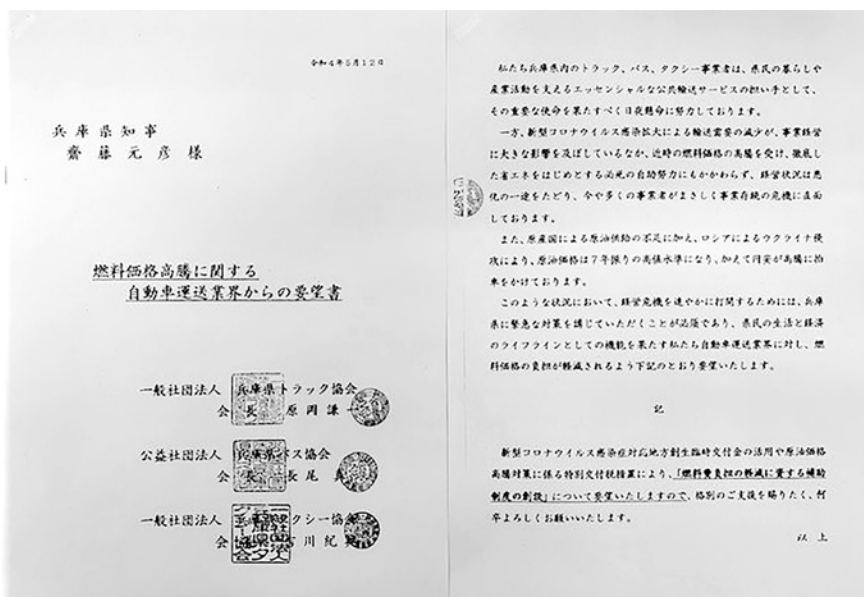 令和4年5月12日
兵庫県知事
齋藤元彦様
燃料価格高騰に関する
自動車運送業界からの要望書
一般社団法人 兵庫県トラック協会
会長 原岡謙一
公益社団法人 兵庫県バス協会
会長 長尾真
一般社団法人 タクシー協会
会 川紀
私たち兵庫県内のトラック、バス、タクシー事業者は、県民の暮らしや
産業活動を支えるエッセンシャルな公共輸送サービスの担い手として、
その重要な使命を果たすべく日夜懸命に努力しております。
一方、新型コロナウイルス感染拡大による輸送需要の減少が、事業経営
に大きな影響を及ぼしているなか、近時の燃料価格の高騰を受け、徹底し
た省エネをはじめとする必死の自助努力にもかかわらず、経営状況は悪
化の一途をたどり、今や多くの事業者がまさしく事業存続の危機に直面
しております。
また、原産国による原油供給の不足に加え、ロシアによるウクライナ侵
攻により、原油価格は7年振りの高値水準になり、加えて円安が高騰に拍
車をかけております。
このような状況において、経営危機を速やかに打開するためには、兵庫
県に緊急な対策を講じていただくことが必須であり、県民の生活と経済
のライフラインとしての機能を果たす私たち自動車運送業界に対し、燃
料価格の負担が軽減されるよう下記のとおり要望いたします。
記
新型コロナウイルス感染症対応地方創生臨時交付金の活用や原油価格
高騰対策に係る特別交付税措置により、「燃料費負担の軽減に資する補助
制度の創設」について要望いたしますので、格別のご支援を賜りたく、何
卒よろしくお願いいたします。
以上